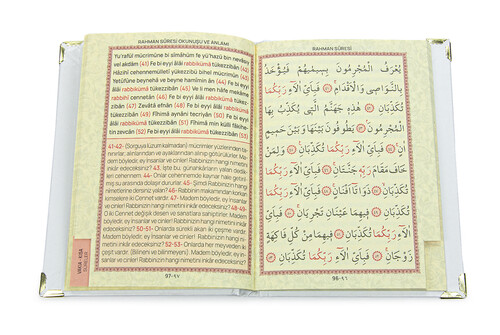 RAHMAN SÛRESİ OKUNUŞU VE ANLAMI
Yu'raful mücrimûne bi sîmâhüm fe yü'hazü bin nevâsıy
vel akdâm (41) Fe bi eyyi âlâi rabbikümâ tükezzibân (42)
Hâzihî cehennemülletî yükezzibü bihel mücrimûn (43)
Yetûfûne beynehâ ve beyne hamîmin ân (44) Fe bi eyyi
âlâi rabbikümâ tükezzibân (45) Ve li men hâfe mekâme
rabbihî cennetân (46) Fe bi eyyi âlâi rabbikümâ
tükezzibân (47) Zevâtâ efnân (48) Fe bi eyyi âlâi
rabbikümâ tükezzibân (49) Fîhimâ aynâni tecriyân (50)
Fe bi eyyi âlâi rabbikümâ tükezzibân (51) Fîhimâ min külli fâkihe-
tin zevcân (52) Fe bi eyyi âlâi rabbikümâ tükezzibân (53)
41-42- (Sorguya lüzum kalmadan) mücrimler yüzlerinden ta-
nınırlar, alınlarından ve ayaklarından alınıp götürülürler. Ma-
dem böyledir; ey insanlar ve cinler! Rabbinizin hangi ni-
metini inkâr edeceksiniz? 43. İşte bu, günahkârların yalan dedik-
leri cehennem. 44- Onlar cehennemde kaynar hale getiril-
miş su arasında dolaşıp dururlar. 45- Şimdi Rabbinizin hangi
nimetlerine dersiniz yalan? 46- Rabbinin makamından korkan
kimselere iki Cennet vardır. 47- Madem böyledir; ey insanlar
ve cinler! Rabbinizin hangi nimetini inkâr edeceksiniz? 48-49-
O iki Cennet değişik desen ve sanatlara sahiptirler. Madem
böyledir; ey insanlar ve cinler! Rabbinizin hangi nimetini inkâr
edeceksiniz? 50-51- Onlarda sürekli akan iki çeşme vardır.
Madem böyledir; ey insanlar ve cinler! Rabbinizin hangi ni-
metini inkâr edeceksiniz? 52-53- Onlarda her meyveden iki
çeşit vardır. (Bilinen ve bilinmeyen). Madem böyledir; ey in-
sanlar ve cinler! Rabbinizin hangi nimetini inkâr edeceksiniz?
97-٩٧
RAHMAN SÛRESİ
يُعْرَفُ الْمُجْرِمُونَ بِسِيمٰيهُمْ فَيُؤْخَذُ
بِالنَّوَاصِى وَالْاَقْدَامِ ﴿٤١﴾ فَبِاَىِّ اٰلَٓاءِ رَبِّكُمَا
تُكَذِّبَانِ ﴿٤٢﴾ هٰذِهٖ جَهَنَّمُ الَّتٖى يُكَذِّبُ بِهَا
الْمُجْرِمُونَ ﴿٤٣﴾ يَطُوفُونَ بَيْنَهَا وَبَيْنَ حَمٖيمٍ
اٰنٍ ﴿٤٤﴾ فَبِاَىِّ اٰلَٓاءِ رَبِّكُمَا تُكَذِّبَانِ ﴿٤٥﴾ وَلِمَنْ
خَافَ مَقَامَ رَبِّهٖ جَنَّتَانِ ﴿٤٦﴾ فَبِاَىِّ اٰلَٓاءِ رَبِّكُمَا
تُكَذِّبَانِ ﴿٤٧﴾ ذَوَاتَٓا اَفْنَانٍ ﴿٤٨﴾ فَبِاَىِّ اٰلَٓاءِ رَبِّكُمَا
تُكَذِّبَانِ ﴿٤٩﴾ فٖيهِمَا عَيْنَانِ تَجْرِيَانِ ﴿٥٠﴾ فَبِاَىِّ
اٰلَٓاءِ رَبِّكُمَا تُكَذِّبَانِ ﴿٥١﴾ فٖيهِمَا مِنْ كُلِّ فَاكِهَةٍ
زَوْجَانِ ﴿٥٢﴾ فَبِاَىِّ اٰلَٓاءِ رَبِّكُمَا تُكَذِّبَانِ
96-٩٦